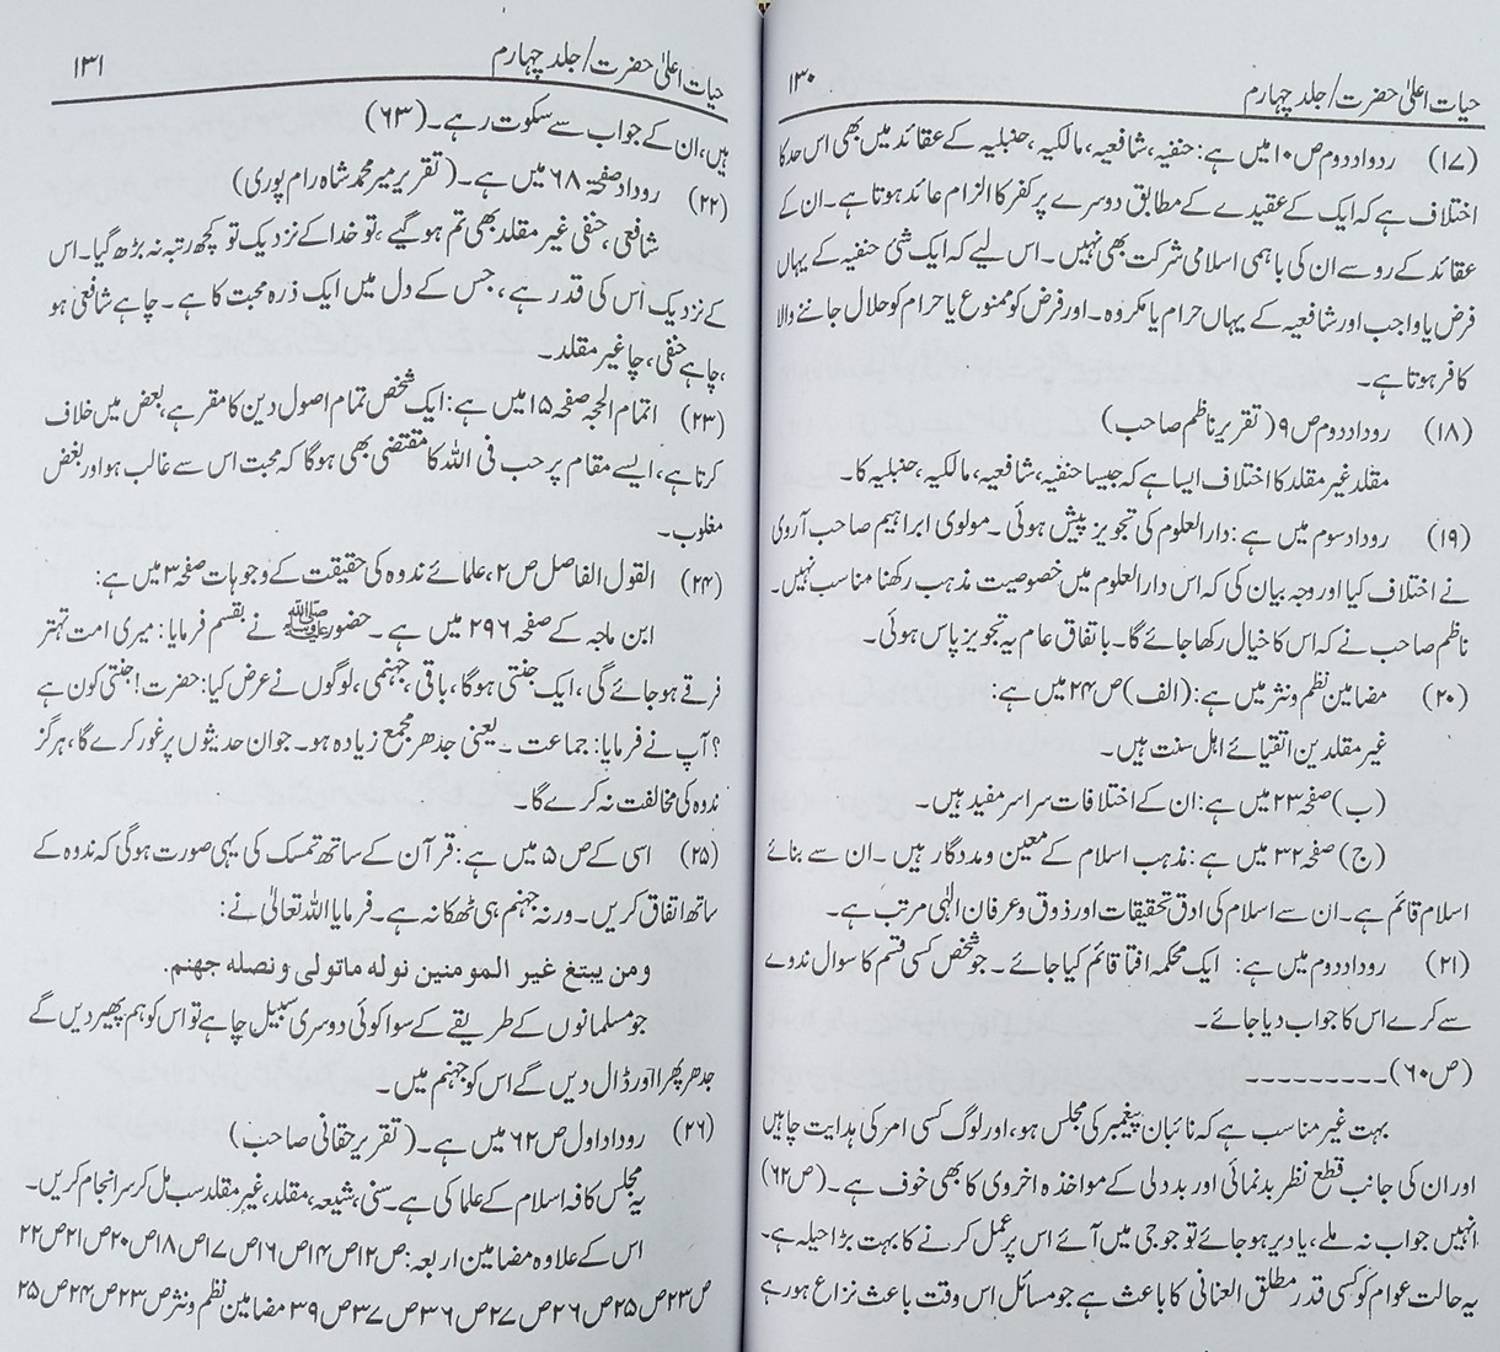 حیات اعلیٰ حضرت/جلد چہارم ۱۳۰
(۱۷) ردواد دوم ص۱۰ میں ہے: حنفیہ، شافعیہ، مالکیہ، حنبلیہ کے عقائد میں بھی اس حد کا
اختلاف ہے کہ ایک کے عقیدے کے مطابق دوسرے پر کفر کا الزام عائد ہوتا ہے۔ ان کے
عقائد کے رو سے ان کی باہمی اسلامی شرکت بھی نہیں۔ اس لیے کہ ایک شئ حنفیہ کے یہاں
فرض یا واجب اور شافعیہ کے یہاں حرام یا مکروہ۔ اور فرض کو ممنوع یا حرام کو حلال جاننے والا
کافر ہوتا ہے۔
(۱۸) روداد دوم ص۹ (تقریر ناظم صاحب)
مقلد غیر مقلد کا اختلاف ایسا ہے کہ جیسا حنفیہ، شافعیہ، مالکیہ، حنبلیہ کا۔
(۱۹) روداد سوم میں ہے: دارالعلوم کی تجویز پیش ہوئی۔ مولوی ابراہیم صاحب آروی
نے اختلاف کیا اور وجہ بیان کی کہ اس دارالعلوم میں خصوصیت مذہب رکھنا مناسب نہیں۔
ناظم صاحب نے کہ اس کا خیال رکھا جائے گا۔ باتفاق عام یہ تجویز پاس ہوئی۔
(۲۰) مضامین نظم و نثر میں ہے: (الف) ص۲۴ میں ہے:
غیر مقلدین اتقیائے اہل سنت ہیں۔
(ب) صفحہ ۲۳ میں ہے: ان کے اختلافات سراسر مفید ہیں۔
(ج) صفحہ ۳۲ میں ہے: مذہب اسلام کے معین و مددگار ہیں۔ ان سے بنائے
اسلام قائم ہے۔ ان سے اسلام کی ادق تحقیقات اور ذوق و عرفان الٰہی مرتب ہے۔
(۲۱) روداد دوم میں ہے: ایک محکمہ افتا قائم کیا جائے۔ جو شخص کسی قسم کا سوال ندوے
سے کرے اس کا جواب دیا جائے۔
(ص۶۰)۔۔۔۔۔۔۔۔۔
بہت غیر مناسب ہے کہ نائبان پیغمبر کی مجلس ہو، اور لوگ کسی امر کی ہدایت چاہیں
اور ان کی جانب قطع نظر بدنمائی اور بددلی کے مواخذہ اخروی کا بھی خوف ہے۔ (ص۶۲)
انہیں جواب نہ ملے، یا دیر ہو جائے تو جو جی میں آئے اس پر عمل کرنے کا بہت بڑا حیلہ ہے۔
یہ حالت عوام کو کسی قدر مطلق العنانی کا باعث ہے جو مسائل اس وقت باعث نزاع ہو رہے
حیات اعلیٰ حضرت/جلد چہارم ۱۳۱
ہیں، ان کے جواب سے سکوت رہے۔ (۶۳)
(۲۲) روداد صفحہ ۶۸ میں ہے۔ (تقریر میر محمد شاہ رام پوری)
شافعی، حنفی غیر مقلد بھی تم ہو گیے، تو خدا کے نزدیک تو کچھ رتبہ نہ بڑھ گیا۔ اس
کے نزدیک اس کی قدر ہے، جس کے دل میں ایک ذرہ محبت کا ہے۔ چاہے شافعی ہو
،چاہے حنفی، چاغیر مقلد۔
(۲۳) اتمام الحجہ صفحہ ۱۵ میں ہے: ایک شخص تمام اصول دین کا مقر ہے، بعض میں خلاف
کرتا ہے، ایسے مقام پر حب فی اللہ کا مقتضی بھی ہوگا کہ محبت اس سے غالب ہو اور بغض
مغلوب۔
(۲۴) القول الفاصل ص۲، علمائے ندوہ کی حقیقت کے وجوہات صفحہ ۳ میں ہے:
ابن ماجہ کے صفحہ ۲۹۶ میں ہے۔ حضور ﷺ نے بقسم فرمایا: میری امت تہتر
فرقے ہو جائے گی، ایک جنتی ہوگا، باقی، جہنمی، لوگوں نے عرض کیا: حضرت! جنتی کون ہے
؟ آپ نے فرمایا: جماعت۔ یعنی جدھر مجمع زیادہ ہو۔ جو ان حدیثوں پر غور کرے گا، ہرگز
ندوہ کی مخالفت نہ کرے گا۔
(۲۵) اسی کے ص۵ میں ہے: قرآن کے ساتھ تمسک کی یہی صورت ہوگی کہ ندوہ کے
ساتھ اتفاق کریں۔ ورنہ جہنم ہی ٹھکانہ ہے۔ فرمایا اللہ تعالیٰ نے:
ومن يبتغ غير المومنين نوله ماتولى ونصله جهنم.
جو مسلمانوں کے طریقے کے سوا کوئی دوسری سبیل چاہے تو اس کو ہم پھیر دیں گے
جدھر پھرا اور ڈال دیں گے اس کو جہنم میں۔
(۲۶) روداد اول ص۶۲ میں ہے۔ (تقریر حقانی صاحب)
یہ مجلس کافہ اسلام کے علما کی ہے۔ سنی، شیعہ، مقلد، غیر مقلد سب مل کر سر انجام کریں۔
اس کے علاوہ مضامین اربعہ: ص۱۲ ص۱۴ ص۱۶ ص۱۷ ص۱۸ ص۲۰ ص۲۱ ص۲۲
ص۲۳ ص۲۵ ص۲۶ ص۲۷ ص۳۶ ص۳۷ ص۳۹ مضامین نظم و نثر ص۲۳ ص۲۴ ص۲۵